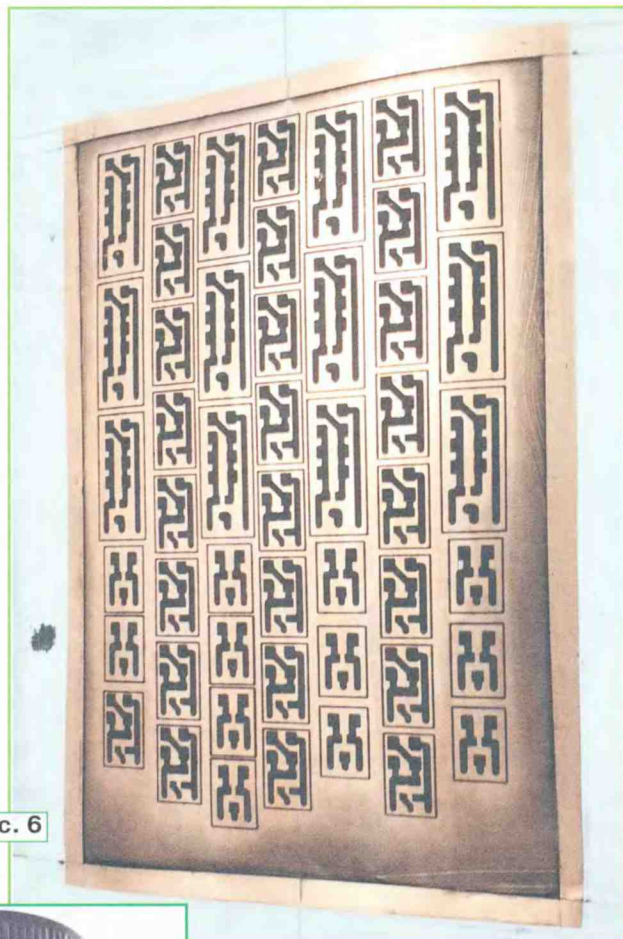 с. 6